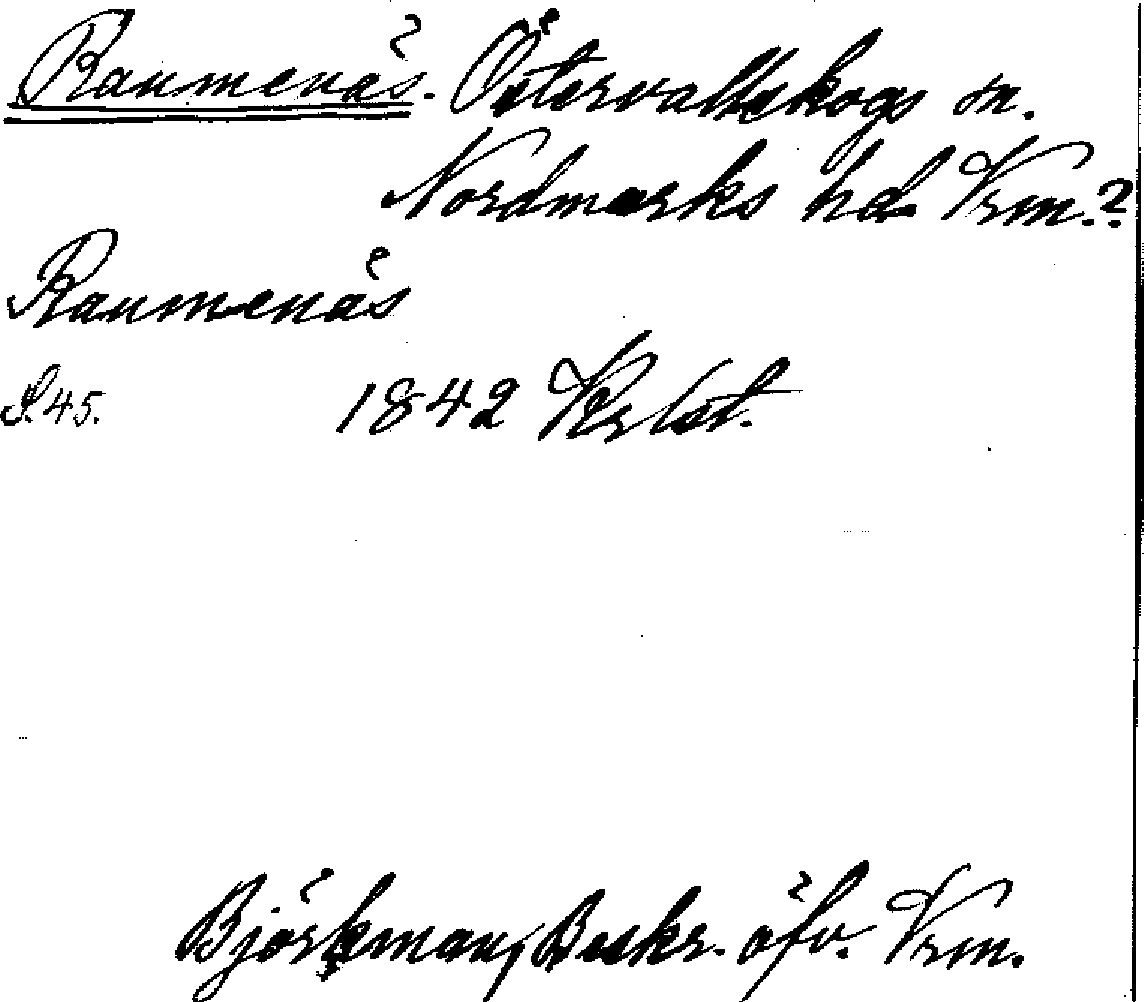 Raumenäs. Östervallskogs sn.
Nordmarks hd Vrm.?
Raumenäs
S. 45. 1842
Björkman, Beskr. öfv. Vrm.